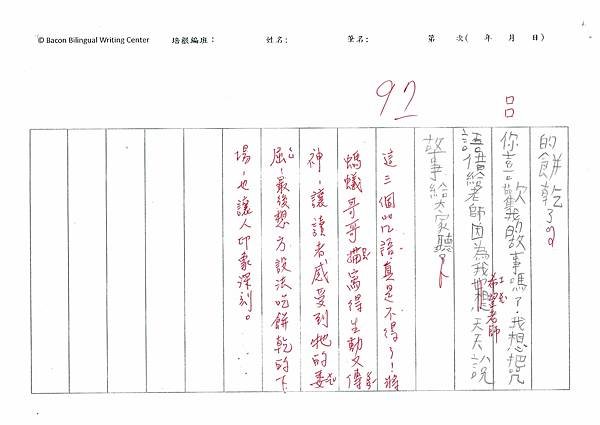 © Bacon Bilingual Writing Center 培根編班： 姓名: 筆名: 第 次( 年 月 日)
97
的餅乾了。
你喜歡我的故事嗎？我想把咒
語借給老師因為我想天天說
希望老師
故事給大家聽。
這三個咒語真是不得了！將
螞蟻哥哥描寫得生動又傳
神，讓讀者感受到牠的委
屈，最後想方設法吃餅乾的下
場，也讓人印象深刻。